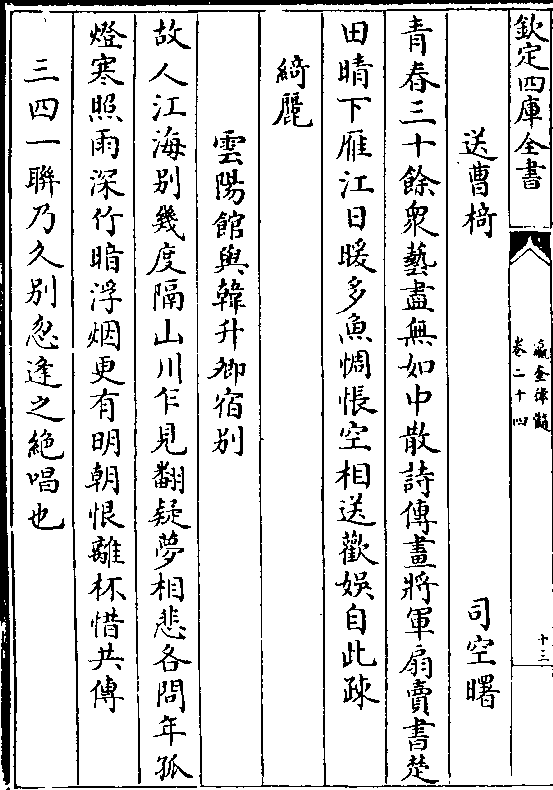 欽定四庫全書
瀛奎律髓
卷二十四
十三
送曹椅
司空曙
青春三十餘衆藝盡無如中散詩傳畫將軍扇賣書楚
田晴下雁江日暖多魚惆悵空相送歡娛自此疎
綺麗
雲陽館與韓升卿宿别
故人江海别幾度隔山川乍見翻疑夢相悲各問年孤
燈寒照雨深竹暗浮烟更有明朝恨離杯惜共傳
三四一聯乃久别忽逢之絶唱也